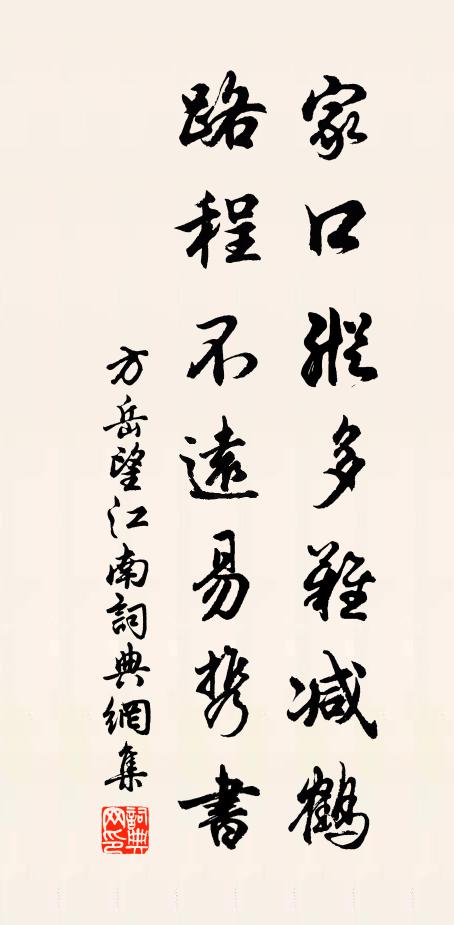 家口縱多難減鶴
路程不遠易携書
方岳望江南詞典網集
詞典网印